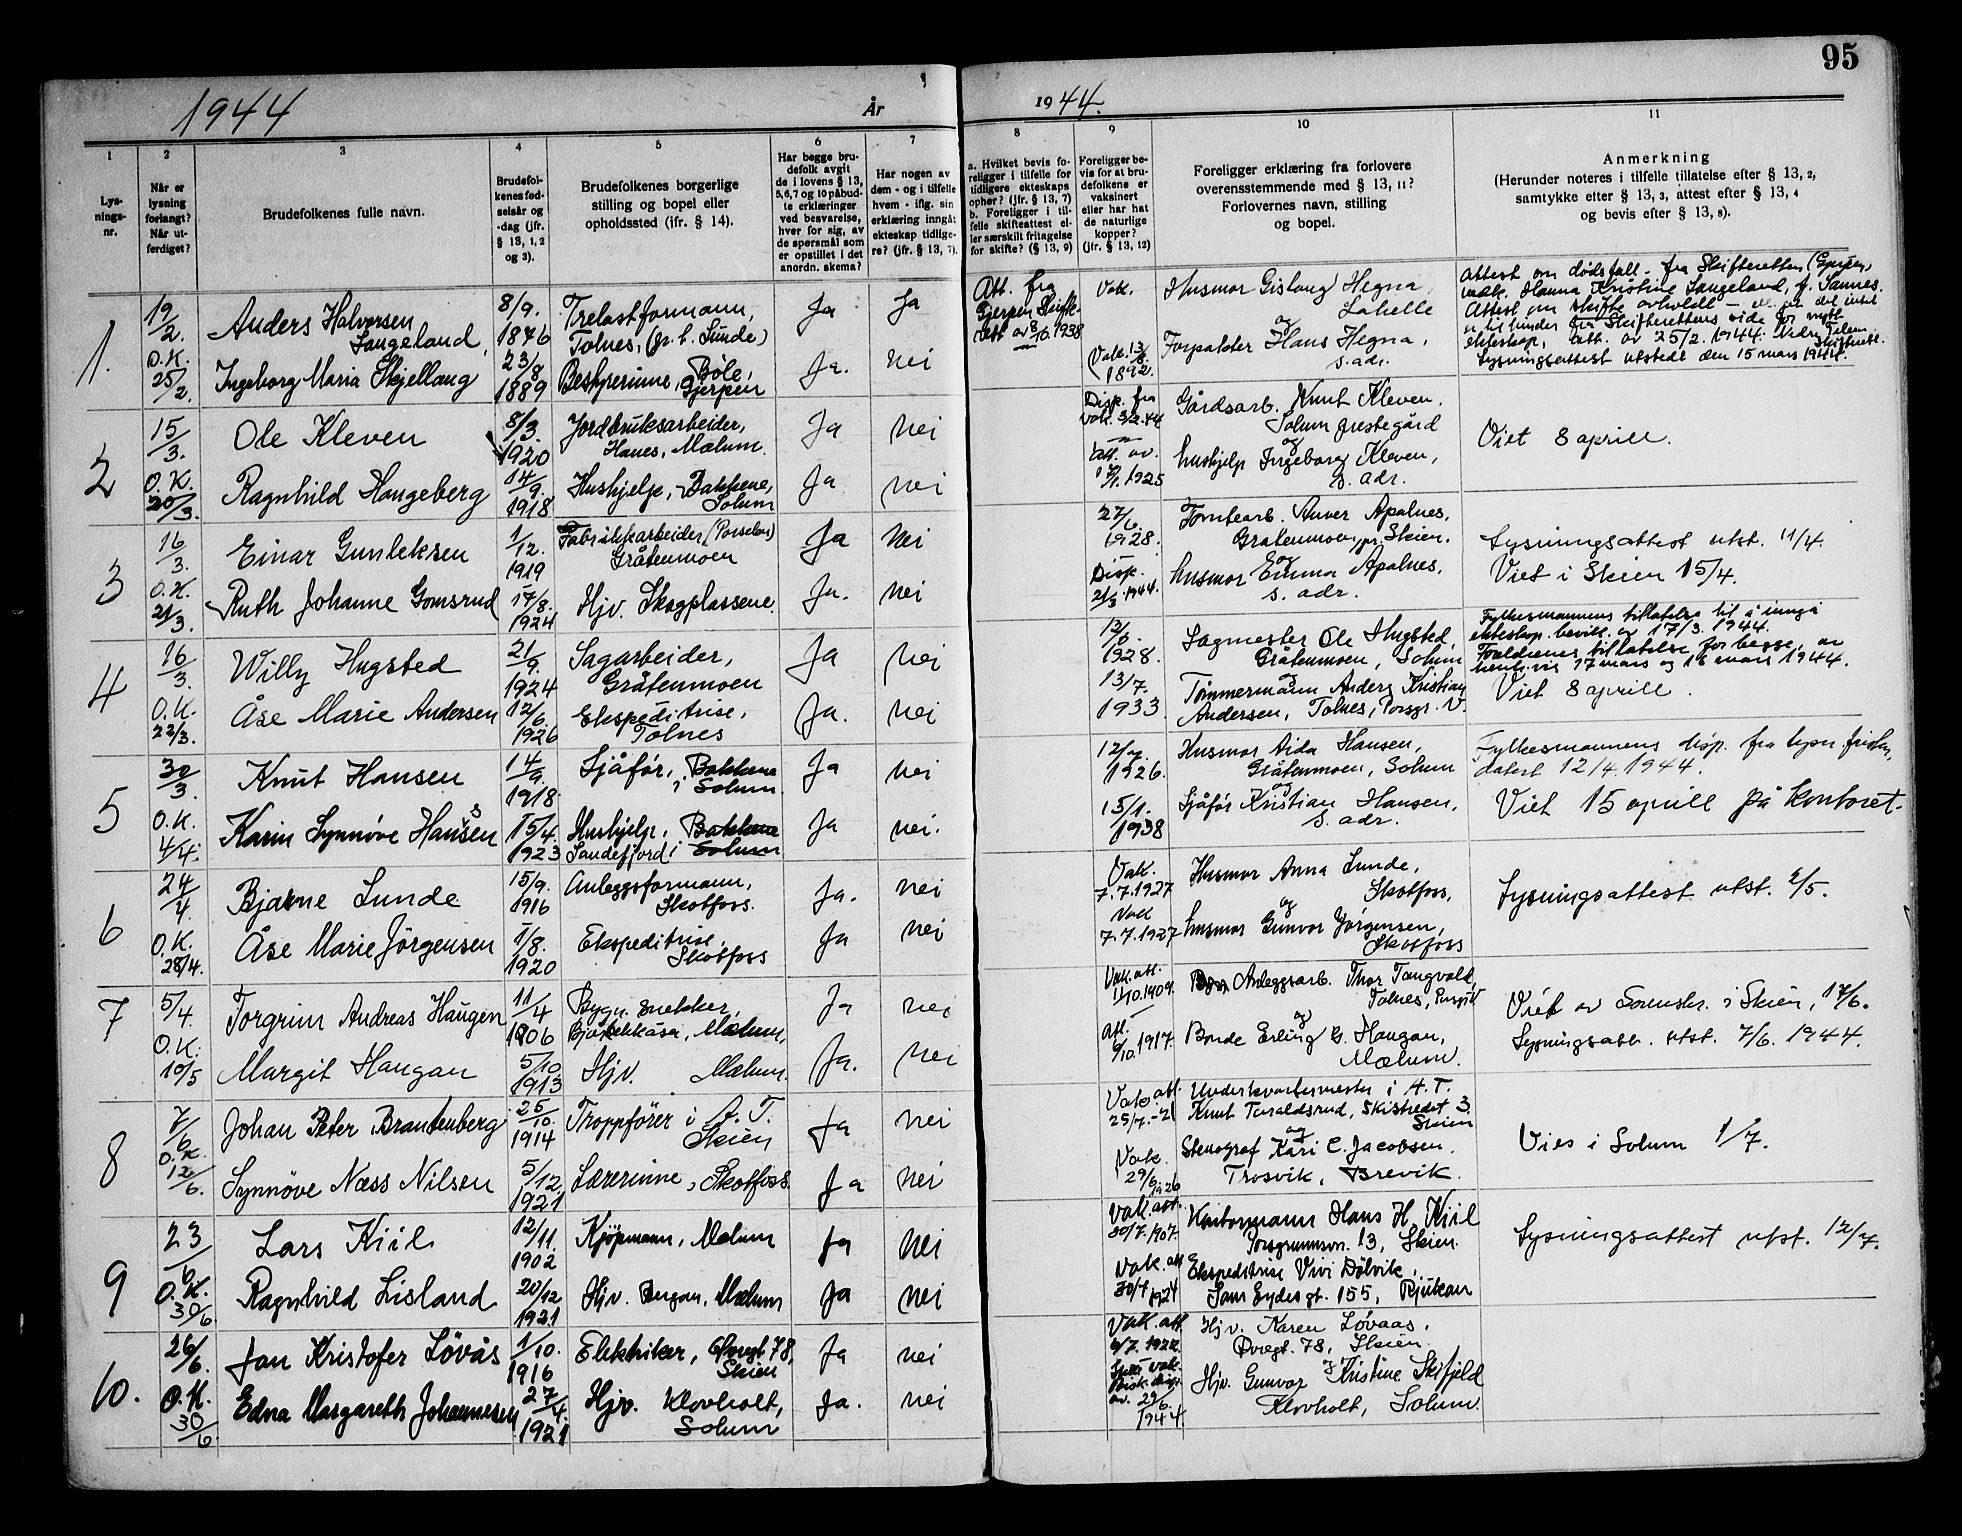 95
1944
År
1944.
1
2
3
4
5
6
7
8
9
10
11
Lys-
nings-
nr.
Når er
lysning
forlangt?
Når ut-
ferdiget?
Brudefolkenes fulle navn.
Brudefol-
kenes fød-
selsår og
-dag (jfr.
§ 13, 1, 2
og 3).
Brudefolkenes borgerlige
stilling og bopel eller
opholdssted (jfr. § 14).
Har begge bru-
defolk avgit
de i lovens § 13,
5,6,7 og 10 påbud-
te erklæringer
ved besvarelse,
hver for sig, av
de spørsmål som
er opstillet i det
anordn. skema?
Har nogen av
dem - og i tilfelle
hvem - iflg. sin
erklæring inngåt
ekteskap tidlige-
re? (jfr. § 13, 7).
a. Hvilket bevis fo-
religger i tilfelle for
tidligere ekteskaps
ophør? (jfr. § 13, 7)
b. Foreligger i til-
felle skifteattest el-
ler særskilt fritagelse
for skifte? (§ 13, 9)
Foreligger be-
vis for at bru-
defolkene er
vaksinert
eller har hat
de naturlige
kopper?
(jfr. § 13, 12)
Foreligger erklæring fra forlovere
overensstemmende med § 13, 11?
Forlovernes navn, stilling
og bopel.
Anmerkning
(Herunder noteres i tilfelle tillatelse efter § 13, 2,
samtykke efter § 13, 3, attest efter § 13, 4
og bevis efter § 13, 8).
1.
19/2.
O.K.
25/2.
Anders Halvorsen
Langeland,
8/9.
1876
Trelastformann,
Tolnes, (gr. b. Lunde)
Ja
Ja
Att. fra
Gjerpen Skifte-
rett av 8/10. 1938
Vak.
Husmor Gislaug Hegna,
Labelle
og
Attest om dødsfall - fra Skifteretten (Gjerpen,
vedk. Hanna Kristine Langeland, f. Sannes.
Attest om skifte avholdt
er til hinder fra Skifterettens side for nytt
ekteskap, att. av 25/2. 1944. Nedre Telem.
Skifterett.
Lysningsattest utstedt den 15 mars 1944.
Ingeborg Maria Skjellaug
23/8
1889
Bestyrerinne, Böle,
Gjerpen
Ja.
nei
Vak. 13/8
1892.
Forpakter Hans Hegna,
s. adr.
2
15/3.
O.K.
20/3.
Ole Kleven
8/3.
1920
Jordbruksarbeider,
Hanes, Mælum.
Ja
nei
Disp. fra
vak. 3/2.44
Gårdsarb. Knut Kleven.
Solum prestegård
og
Viet 8 aprill.
Ragnhild Haugeberg
14/9.
1918
Hushjelp, Bakkene,
Solum
Ja
nei
att. av.
1925
hushjelp Ingeborg Kleven,
s. adr.
3
16/3.
O.K.
21/3.
Einar Gunleksen
1/12.
1919
Fabrikkarbeider, (Porselen)
Gråtenmoen
Ja
nei
27/6.
1928.
Tomtearb. Anver Apalnes,
Gratenmoen, pr. Skien.
og
Lysningsattest utst. 11/4.
Viet i Skien 15/4.
Ruth Johanne Gomsrud
17/8.
1924
Hjv. Skogplassene.
Ja.
nei
Disp.
21/3. 1944.
husmor Emma Apalnes.
s. adr.
4
16/3.
O.K.
22/3.
Willy Hugsted
21/9.
1924
Sagarbeider,
Gråtenmoen
Ja
nei
12/6.
1928.
Sagmester Ole Hugsted,
Gråtenmoen, Solum
og
Fylkesmannens tillatelse til å inngå
ekteskap. bevill. av 17/3. 1944.
Foreldrenes tillatelse for begge, av
henh.vis 17 mars og 16 mars 1944.
Viet 8 aprill.
Åse Marie Andersen
12/6.
1926
Ekspeditrise,
Tolnes
Ja.
nei
13/7.
1933
Tømmermann Anders Kristian
Andersen, Tolnes, Porsgr. V.
5
30/3.
O.K.
4/4.
Knut Hansen
14/9.
1918.
Sjåfør, Bakkene
i Solum.
Ja
nei
12/9
1926.
Husmor Aida Hansen,
Gråtenmoen, Solum
og
Fylkesmannens disp. fra lysn. fristen,
datert 12/4. 1944.
Viet 15 aprill på kontoret.
Karin Synnøve Hansen
15/4.
1923
Hushjelp, Bakkene
Sandefjord i Solum
Ja
nei.
15/1.
1938
Sjåfør Kristian Hansen,
s. adr.
6
24/4.
O.K.
28/4.
Bjarne Lunde
15/9.
1916
Anleggsformann,
Skotfoss.
Ja.
nei
Vak.
7.7.1927
Husmor Anna Lunde,
Skotfoss,
og
Lysningsattest utst. 2/5.
Åse Marie Jörgensen
1/8.
1920
Ekspeditrise,
Skotfoss
Ja
nei
Vak
7.7.1927
husmor Gunvor Jørgensen,
Skotfoss
7
5/4.
O.K.
10/5
Torgrim Andreas Haugen
11/4
1906
Bygn. snekker,
Bjørkekåsa, Mælum,
Ja
nei
Vak. att.
11/10.1909.
Anleggsarb. Thor Tangvald,
Tolnes,
og
Viet av Sorenskr. i Skien, 17/6.
Lysningsatt. utst. 7/6. 1944.
Margit Haugan
5/10
1913
Hjv. Mælum.
Ja.
nei
Att.
9/10.1917.
Bonde Erling G. Haugan,
Mælum.
8
7/6
O.K.
12/6.
Johan Peter Brantenberg
25/10.
1914
Troppfører i A. T.
Skien
Ja
nei
Vak. att.
25/7.-21
Underkvartermester i A.T.
Knut Taraldsrud, Skistredet 3.
Skien
og
Vies i Solum 1/7.
Synnöve Næss Nilsen
5/12
1921
Lærerinne, Skotfoss
Ja
nei
Vak.
29/6 1926
Stenograf Kari C. Jacobsen.
Trosvik, Brevik.
9
23/6
O.K.
30/6.
Lars Kiil
12/11.
1902
Kjøpmann, Mælum
Ja
nei
Vak. att.
30/7.1907.
Kontormann Hans H. Kiil
Porsgrunnsv. 13, Skien.
Lysningsattest utst. 12/7.
Ragnhild Lisland
20/12
1921
Hjv. Mælum
Ja
nei
Vak. att
30/7 1924
Ekspeditrise Vivi Dølvik,
Sam Eydes gt. 155, Rjukan
10.
26/6.
O.K.
30/6
Jan Kristofer Lövås
1/10.
1916
Elektriker, 78,
Skien
Ja
nei
Vak. att.
Hjv. Karen Løvaas.
78, Skien.
Edna Margareth Johannesen
27/4.
1921
Hjv. Klovholt,
Solum
Ja.
nei
29/6
1944.
Hjv. Gunvor Kristine Skifjeld
Klovholt, Solum.